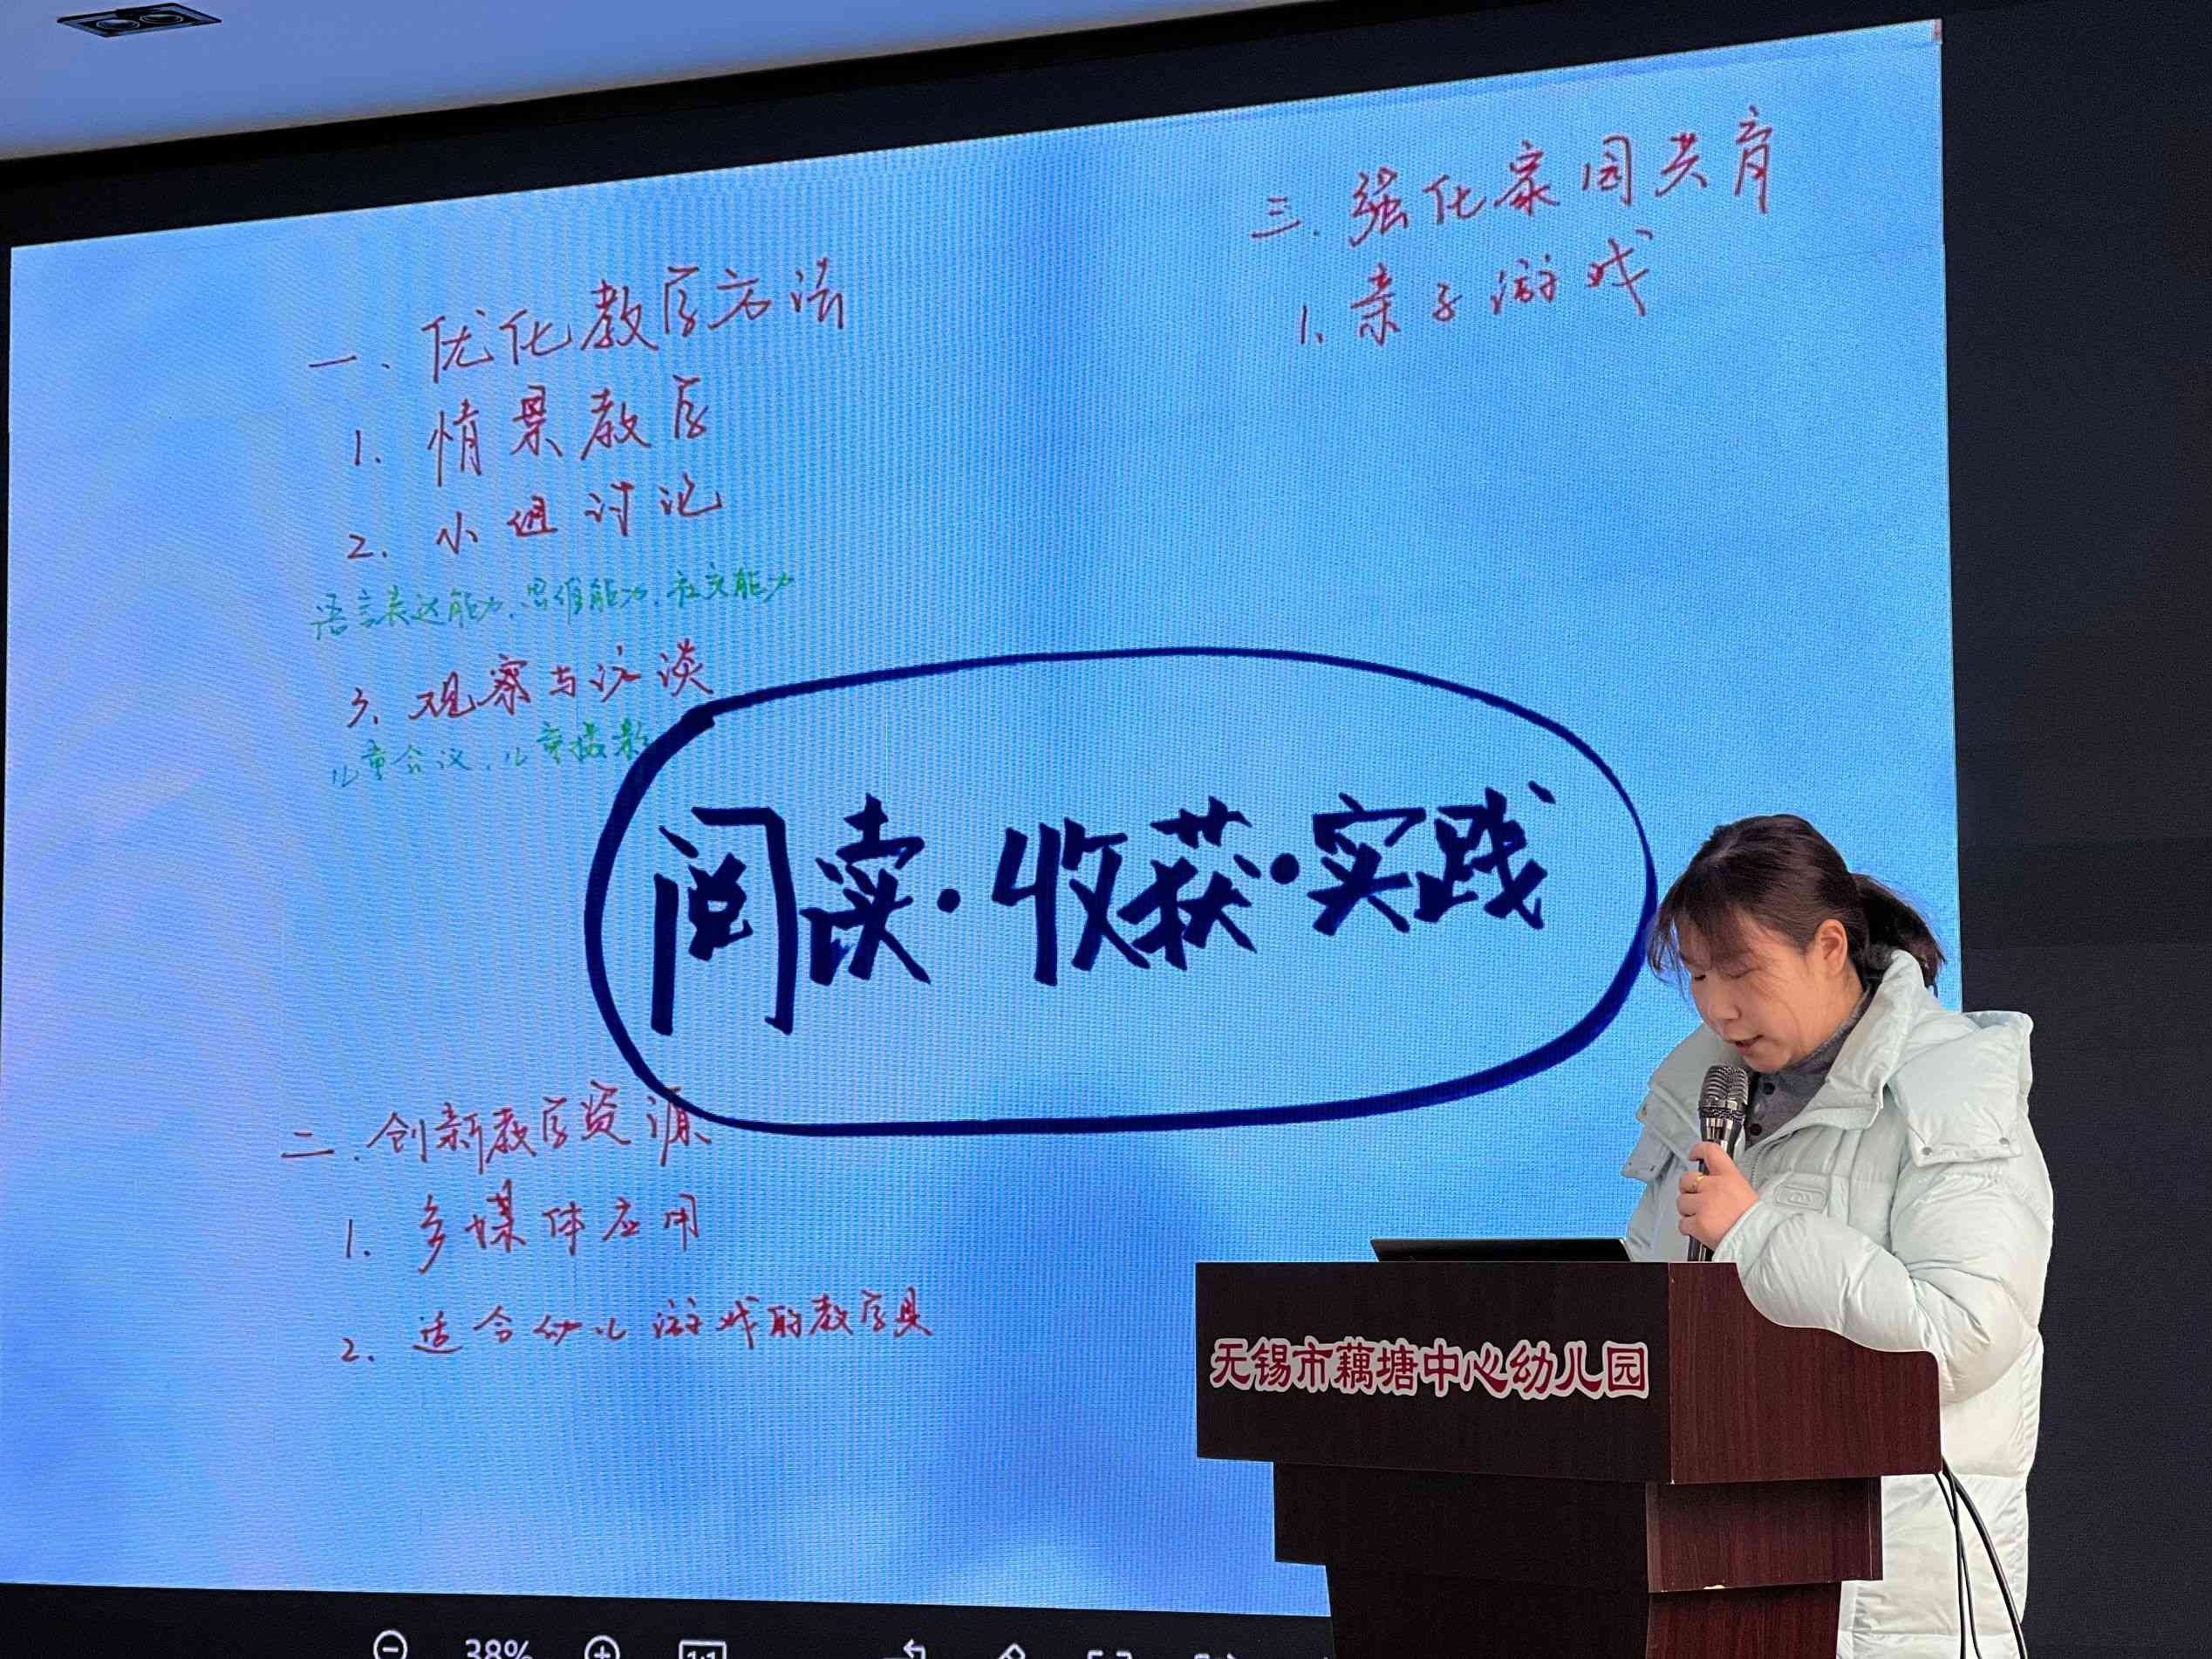 一.优化教学方法
1.情景教学
2.小组讨论
语言表达能力、思维能力、社交能力
3、观察与访谈
儿童会议、儿童摄影
阅读·收获·实践
二.创新教学资源
1.多媒体应用
2.适合幼儿游戏的教学具
三.强化家园共育
1、亲子游戏
无锡市藕塘中心幼儿园
38%
1:1